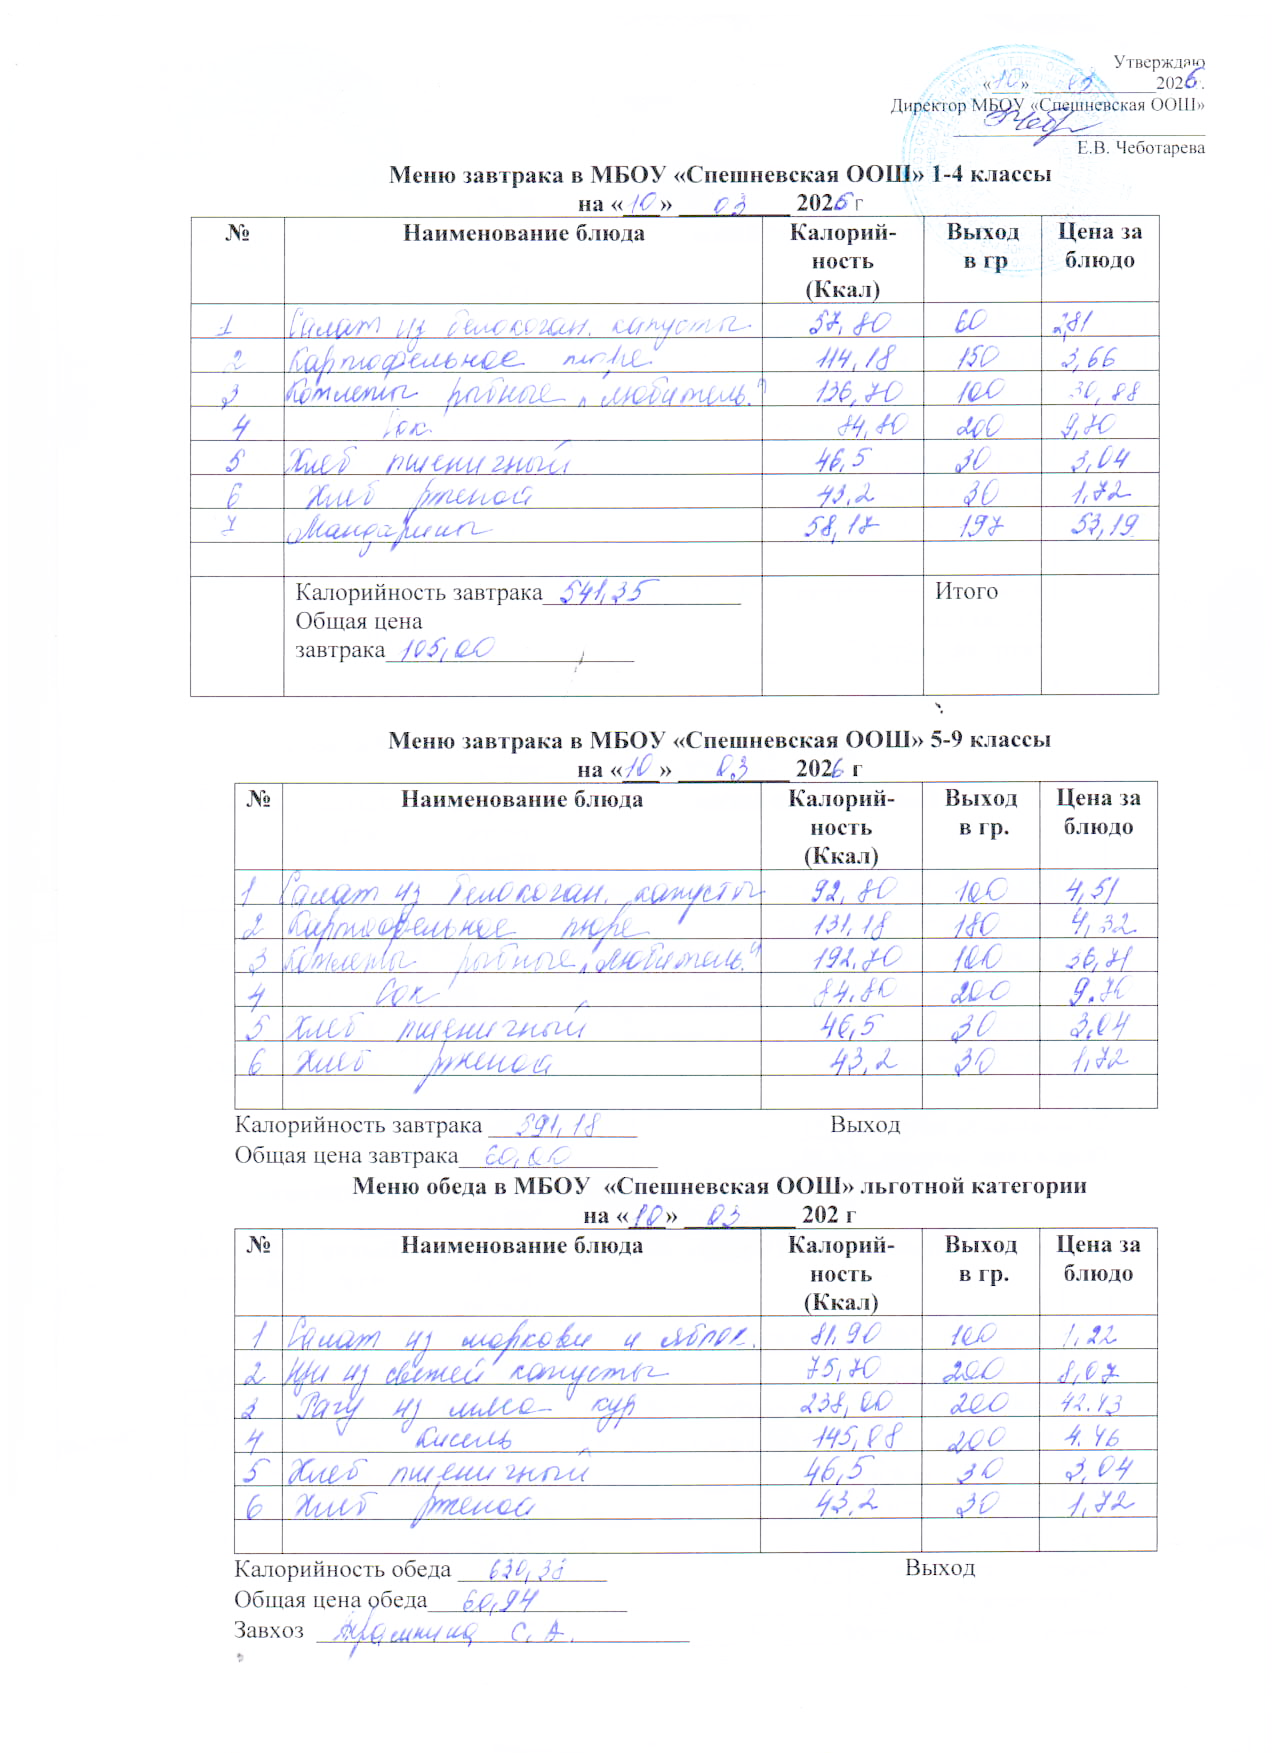 Утверждаю
«10» 03 2026.
Директор МБОУ «Спешневская ООШ»
Е.В. Чеботарева
Меню завтрака в МБОУ «Спешневская ООШ» 1-4 классы
на «10» 03 2026 г
№ Наименование блюда Калорий-ность (Ккал) Выход в гр Цена за блюдо
1 Салат из белокочан. капусты 57,80 60 2,81
2 Картофельное пюре 114,18 150 3,66
3 Котлеты рыбные „любитель." 136,70 100 30,88
4 Сок 84,80 200 9,70
5 Хлеб пшеничный 46,5 30 3,04
6 Хлеб ржаной 43,2 30 1,72
7 Мандарины 58,17 197 53,19
Калорийность завтрака 541,35 Итого
Общая цена
завтрака 105,00
Меню завтрака в МБОУ «Спешневская ООШ» 5-9 классы
на «10» 03 2026 г
№ Наименование блюда Калорий-ность (Ккал) Выход в гр. Цена за блюдо
1 Салат из белокочан. капусты 92,80 100 4,51
2 Картофельное пюре 131,18 180 4,32
3 Котлеты рыбные „любитель." 192,70 100 36,71
4 Сок 84,80 200 9.70
5 Хлеб пшеничный 46,5 30 3,04
6 Хлеб ржаной 43,2 30 1,72
Калорийность завтрака 591,18 Выход
Общая цена завтрака 60,00
Меню обеда в МБОУ «Спешневская ООШ» льготной категории
на «10» 03 202 г
№ Наименование блюда Калорий-ность (Ккал) Выход в гр. Цена за блюдо
1 Салат из моркови и яблок. 81.90 100 1,22
2 Щи из свежей капусты 75,70 200 8,07
3 Рагу из мяса кур 238,00 200 42.43
4 Кисель 145,08 200 4.46
5 Хлеб пшеничный 46,5 30 3,04
6 Хлеб ржаной 43.2 30 1,72
Калорийность обеда 630,38 Выход
Общая цена обеда 60,94
Завхоз С. А.